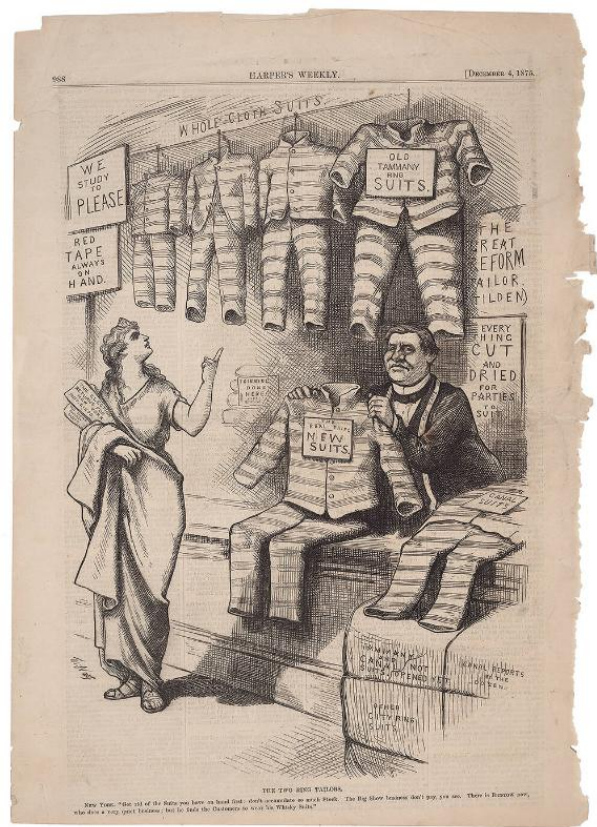 988
HARPER'S WEEKLY.
[DECEMBER 4, 1875.
WHOLE-CLOTH SUITS
WE
STUDY
TO
PLEASE
RED
TAPE
ALWAYS
ON
HAND.
OLD
TAMMANY
RING
SUITS.
THE
REAT
EFORM
AILOR.
TILDEN)
EVERY
THING
CUT
AND
DRIED
FOR
PARTIES
TO
SUIT
TRIMMING
DONE
HERE
NEW
SUITS.
CANAL
SUITS
TAMMANY
CANAL
NOT
OPENED YET
CANAL REPORTS
BY THE
CITY RING
SUITS
THE TWO RING TAILORS.
NEW YORK. "Get rid of the Suits you have on hand first: don't accumulate so much Stock. The Big Show business don't pay, you see. There is BRISTOW now,
who does a very quiet business; but he finds the Customers to wear his Whisky Suits."